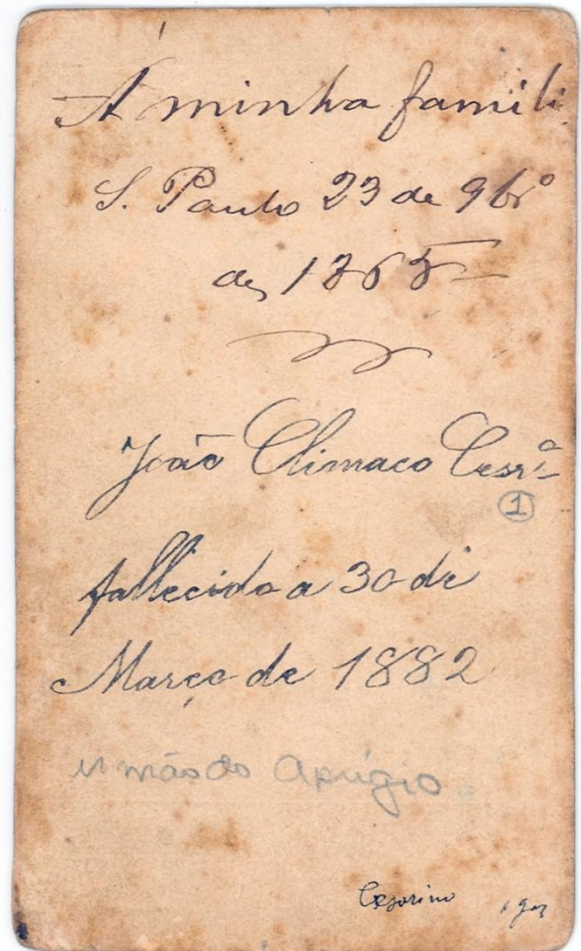 A minha famili
S. Paulo 23 de 9br.º
de 1865
João Climaco Cesr.ª
1
fallecido a 30 de
Março de 1882
irmão do Aprígio
Cesarino